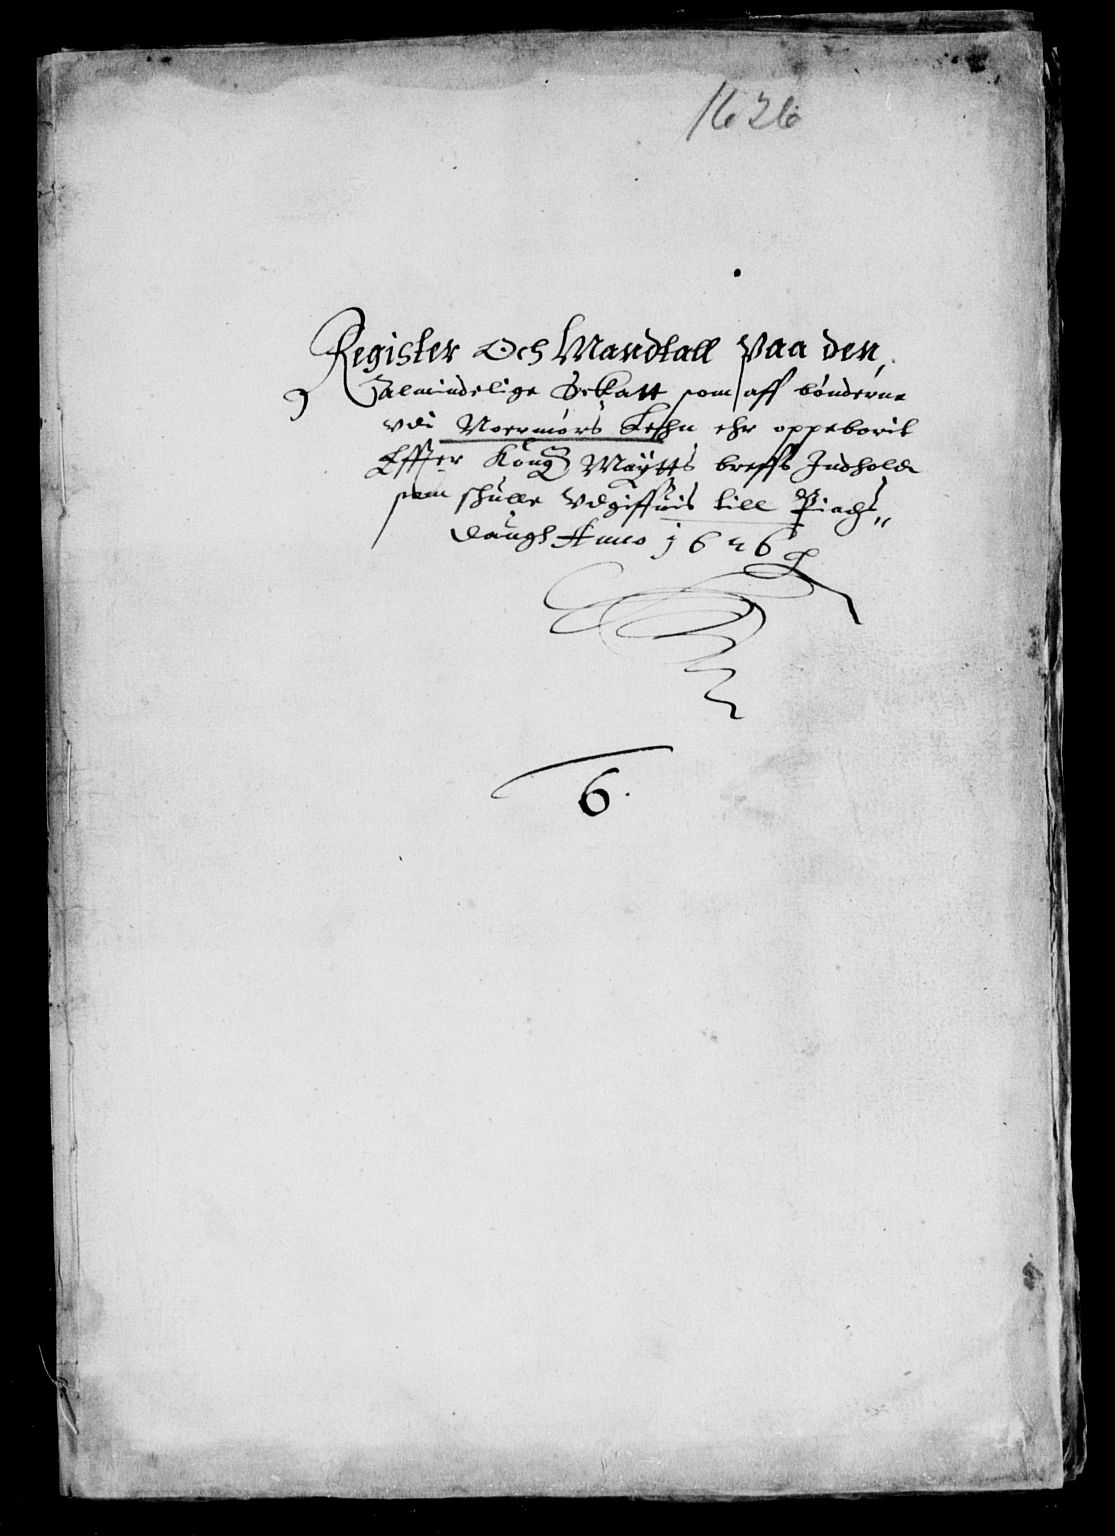 1626
Register Och Mandtall Paa den
Galmindelige Schatt som aff bønderne
vdi Noermørs Lehn ehr oppeborit
Effter Kong Maÿtts breffs Indhold
som schulle Vdgiffuis till Piachs
daugh Anno 1626
6.